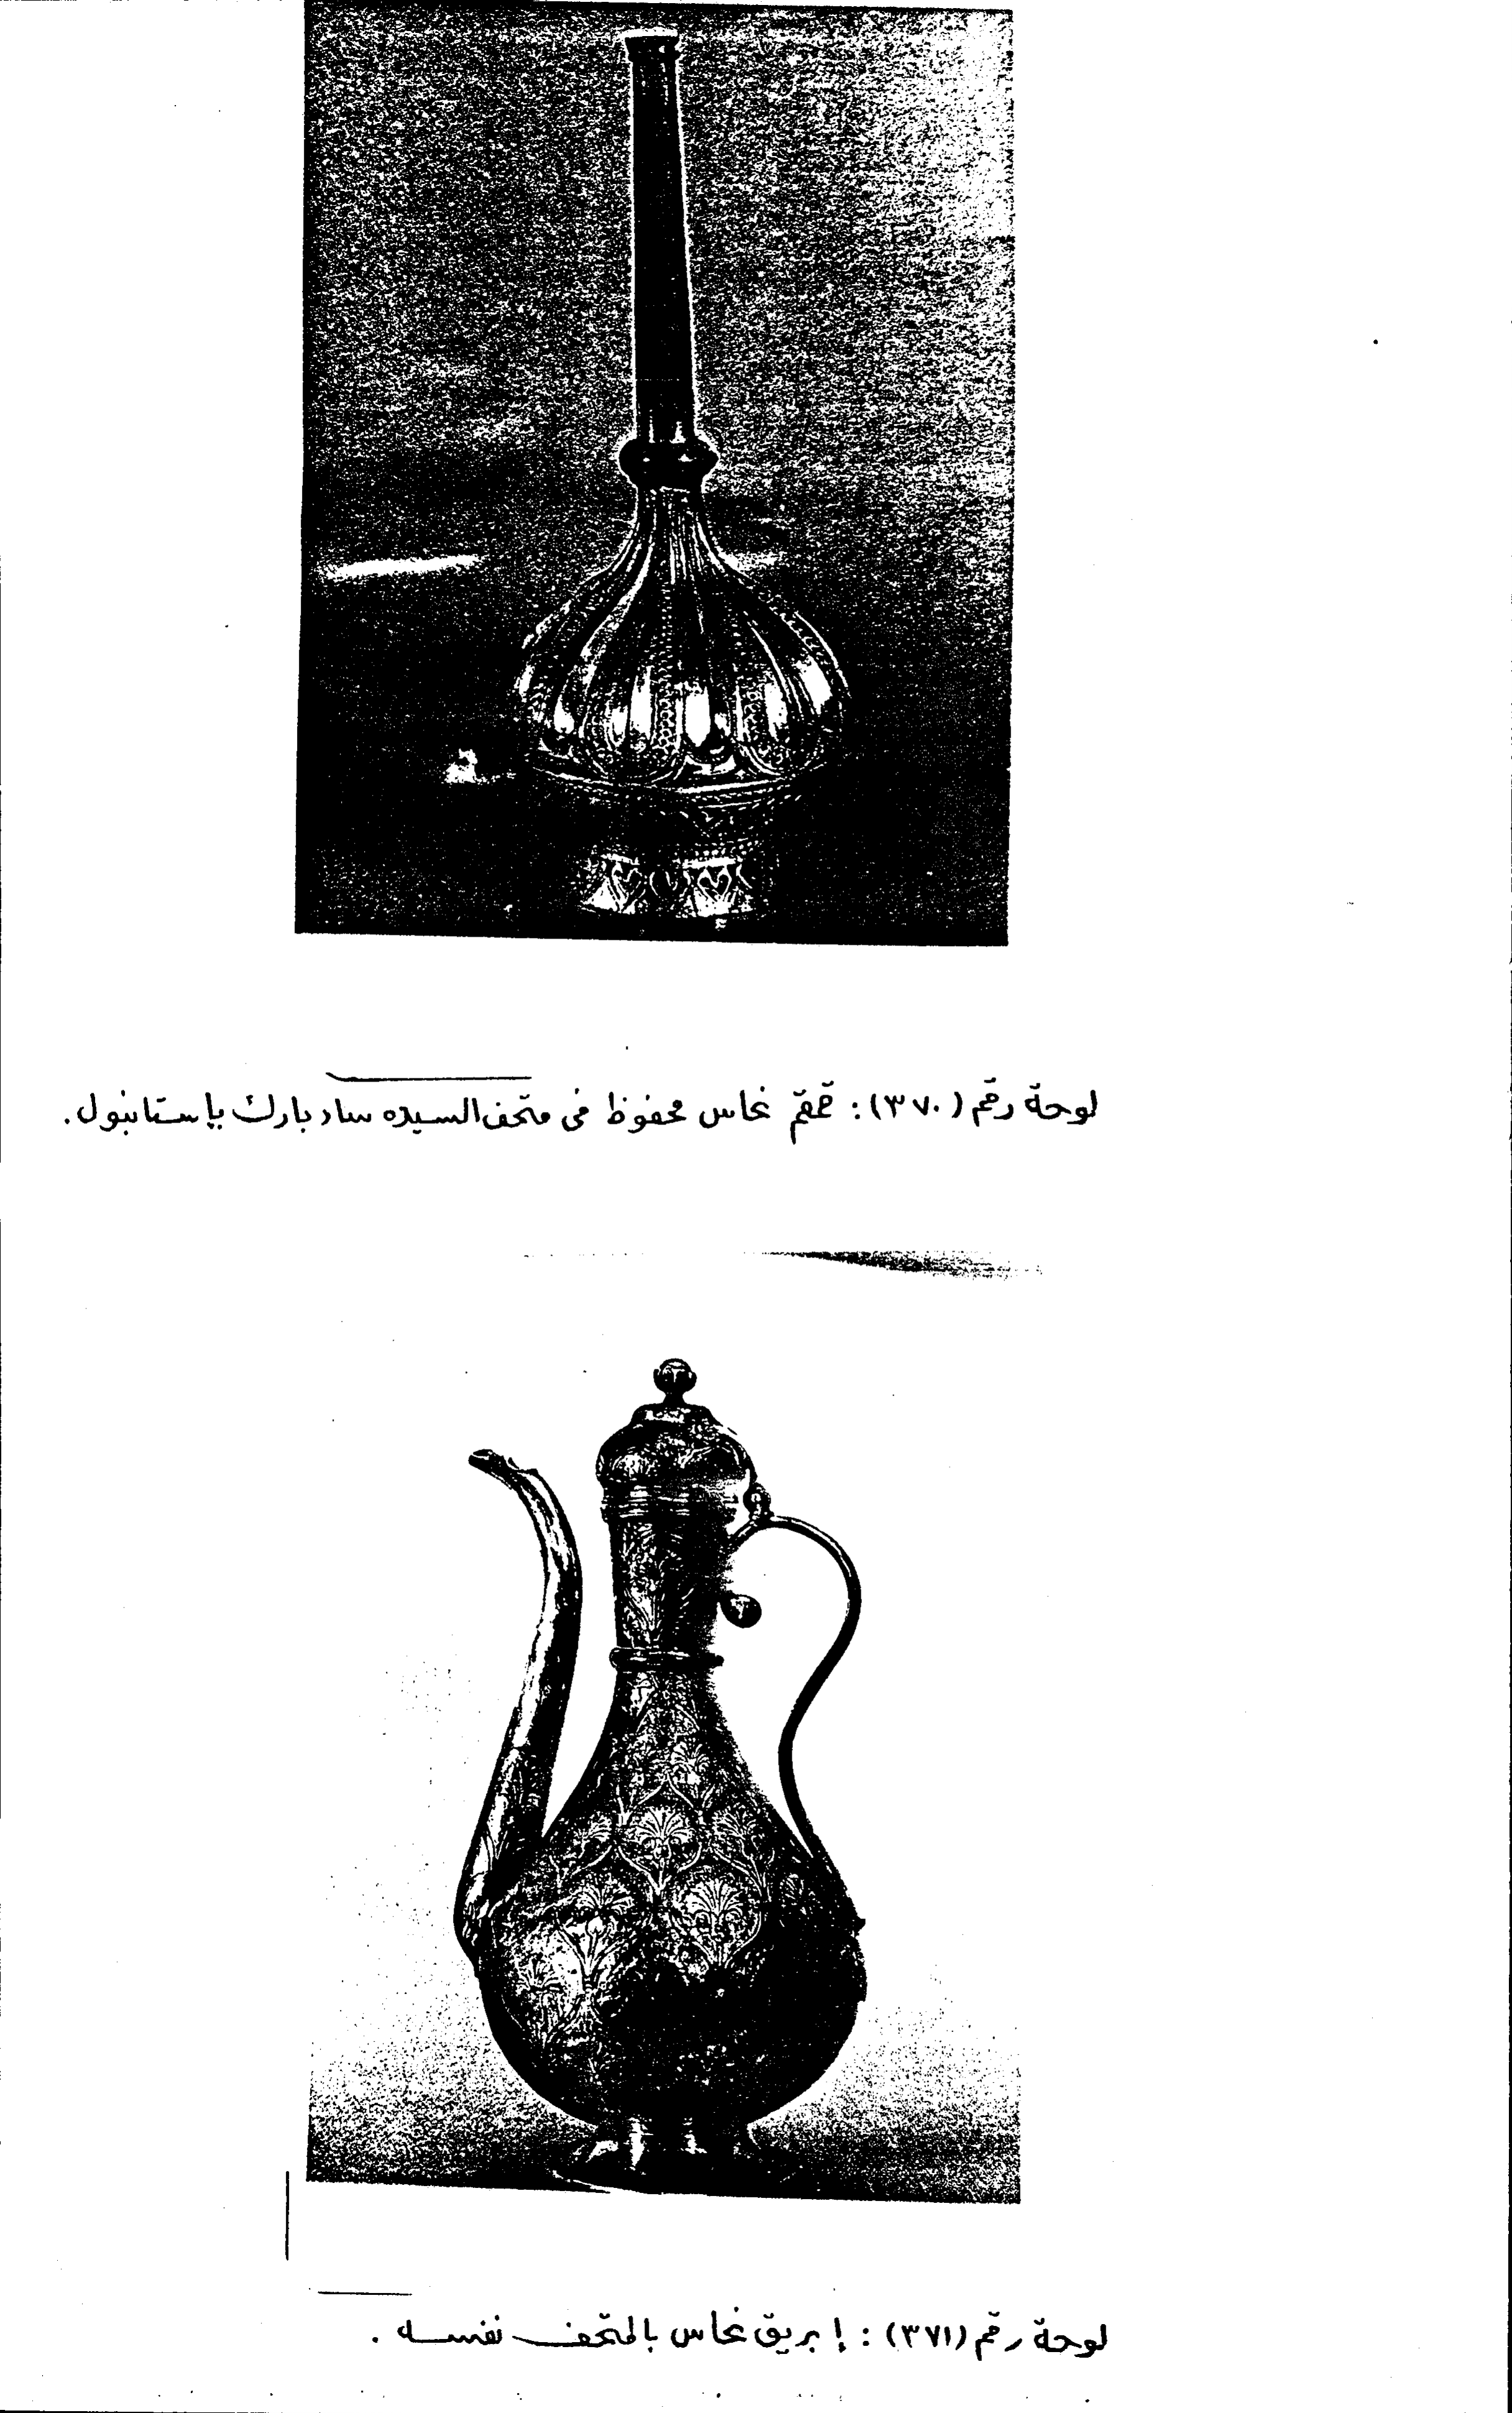 لوحة رقم (٣٧٠): قمقم نحاس محفوظ فى متحف السيده سادبارك بإستانبول.
لوحة رقم (٣٧١): إبريق نحاس بالمتحف نفسه.